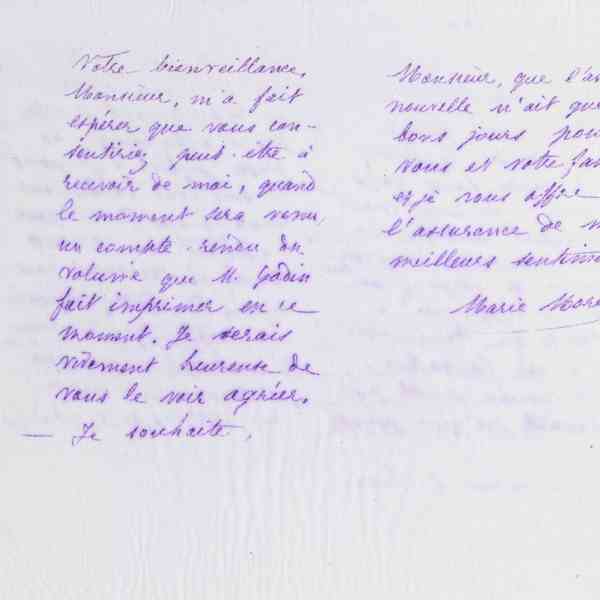 Votre bienveillance,
Monsieur, m'a fait
espérer que vous con-
sentiriez peut-être à
recevoir de moi, quand
le moment sera venu,
un compte-rendu du
volume que M. Godin
fait imprimer en ce
moment. Je serais
vivement heureuse de
vous le voir agréer.
— Je souhaite,
Monsieur, que l'an
nouvelle n'ait que
bons jours pou
vous et votre fam
et je vous offre
l'assurance de m
meilleurs sentim
Marie More